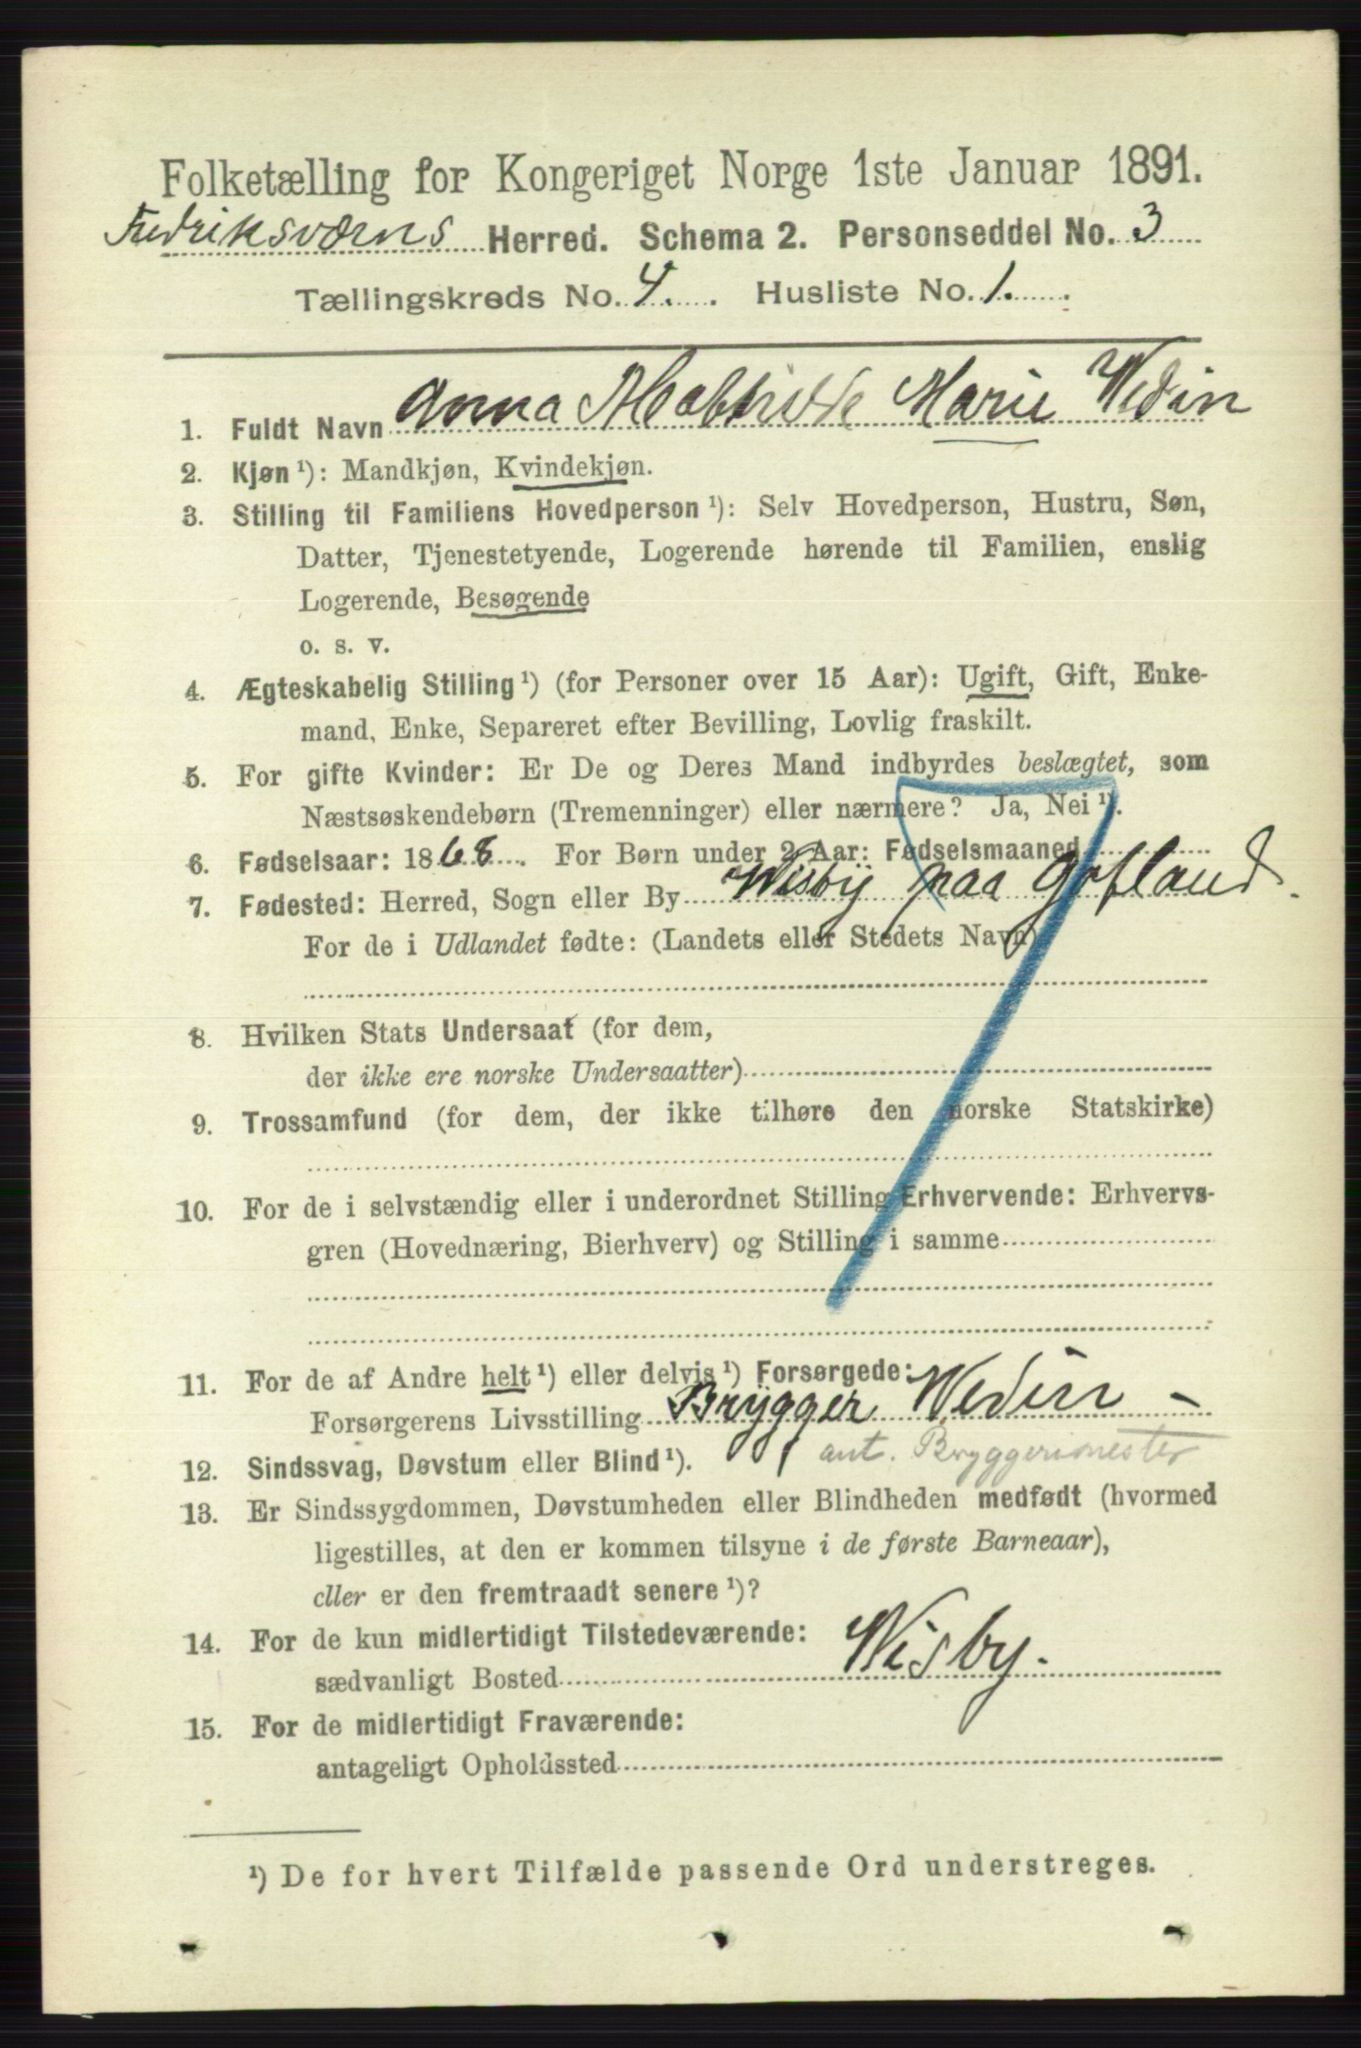 Folketælling for Kongeriget Norge 1ste Januar 1891.
Fredriksværns Herred. Schema 2. Personseddel No. 3
Tællingskreds No. 4. Husliste No. 1.
1. Fuldt Navn Anna Mathilde Marie Wedin
2. Kjøn ¹): Mandkjøn, Kvindekjøn.
3. Stilling til Familiens Hovedperson ¹): Selv Hovedperson, Hustru, Søn,
Datter, Tjenestetyende, Logerende hørende til Familien, enslig
Logerende, Besøgende
o. s. v.
4. Ægteskabelig Stilling ¹) (for Personer over 15 Aar): Ugift, Gift, Enke-
mand, Enke, Separeret efter Bevilling, Lovlig fraskilt.
5. For gifte Kvinder: Er De og Deres Mand indbyrdes beslægtet, som
Næstsøskendebørn (Tremenninger) eller nærmere? Ja, Nei ¹).
6. Fødselsaar: 1868. For Børn under 2 Aar: Fødselsmaaned
7. Fødested: Herred, Sogn eller By Wisby paa Gotland.
For de i Udlandet fødte: (Landets eller Stedets Navn)
8. Hvilken Stats Undersaat (for dem,
der ikke ere norske Undersaatter)
9. Trossamfund (for dem, der ikke tilhøre den norske Statskirke)
10. For de i selvstændig eller i underordnet Stilling Erhvervende: Erhvervs-
gren (Hovednæring, Bierhverv) og Stilling i samme
11. For de af Andre helt ¹) eller delvis ¹) Forsørgede:
Forsørgerens Livsstilling Brygger Wedin -
ant. Bryggerimester
12. Sindssvag, Døvstum eller Blind ¹).
13. Er Sindssygdommen, Døvstumheden eller Blindheden medfødt (hvormed
ligestilles, at den er kommen tilsyne i de første Barneaar),
eller er den fremtraadt senere ¹)?
14. For de kun midlertidigt Tilstedeværende:
sædvanligt Bosted Wisby.
15. For de midlertidigt Fraværende:
antageligt Opholdssted
¹) De for hvert Tilfælde passende Ord understreges.